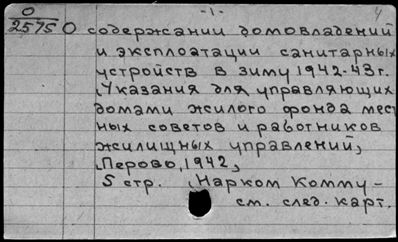 -1- 4
О
2575 О содержании домовладений
и эксплоатации санитарных
устройств в зиму 1942-43г.
Указания для управляющих
домами жилого фонда мест
ных советов и работников
жилищных управлений,
Перово, 1942,
5 стр. Нарком Комму-
см. след. карт.